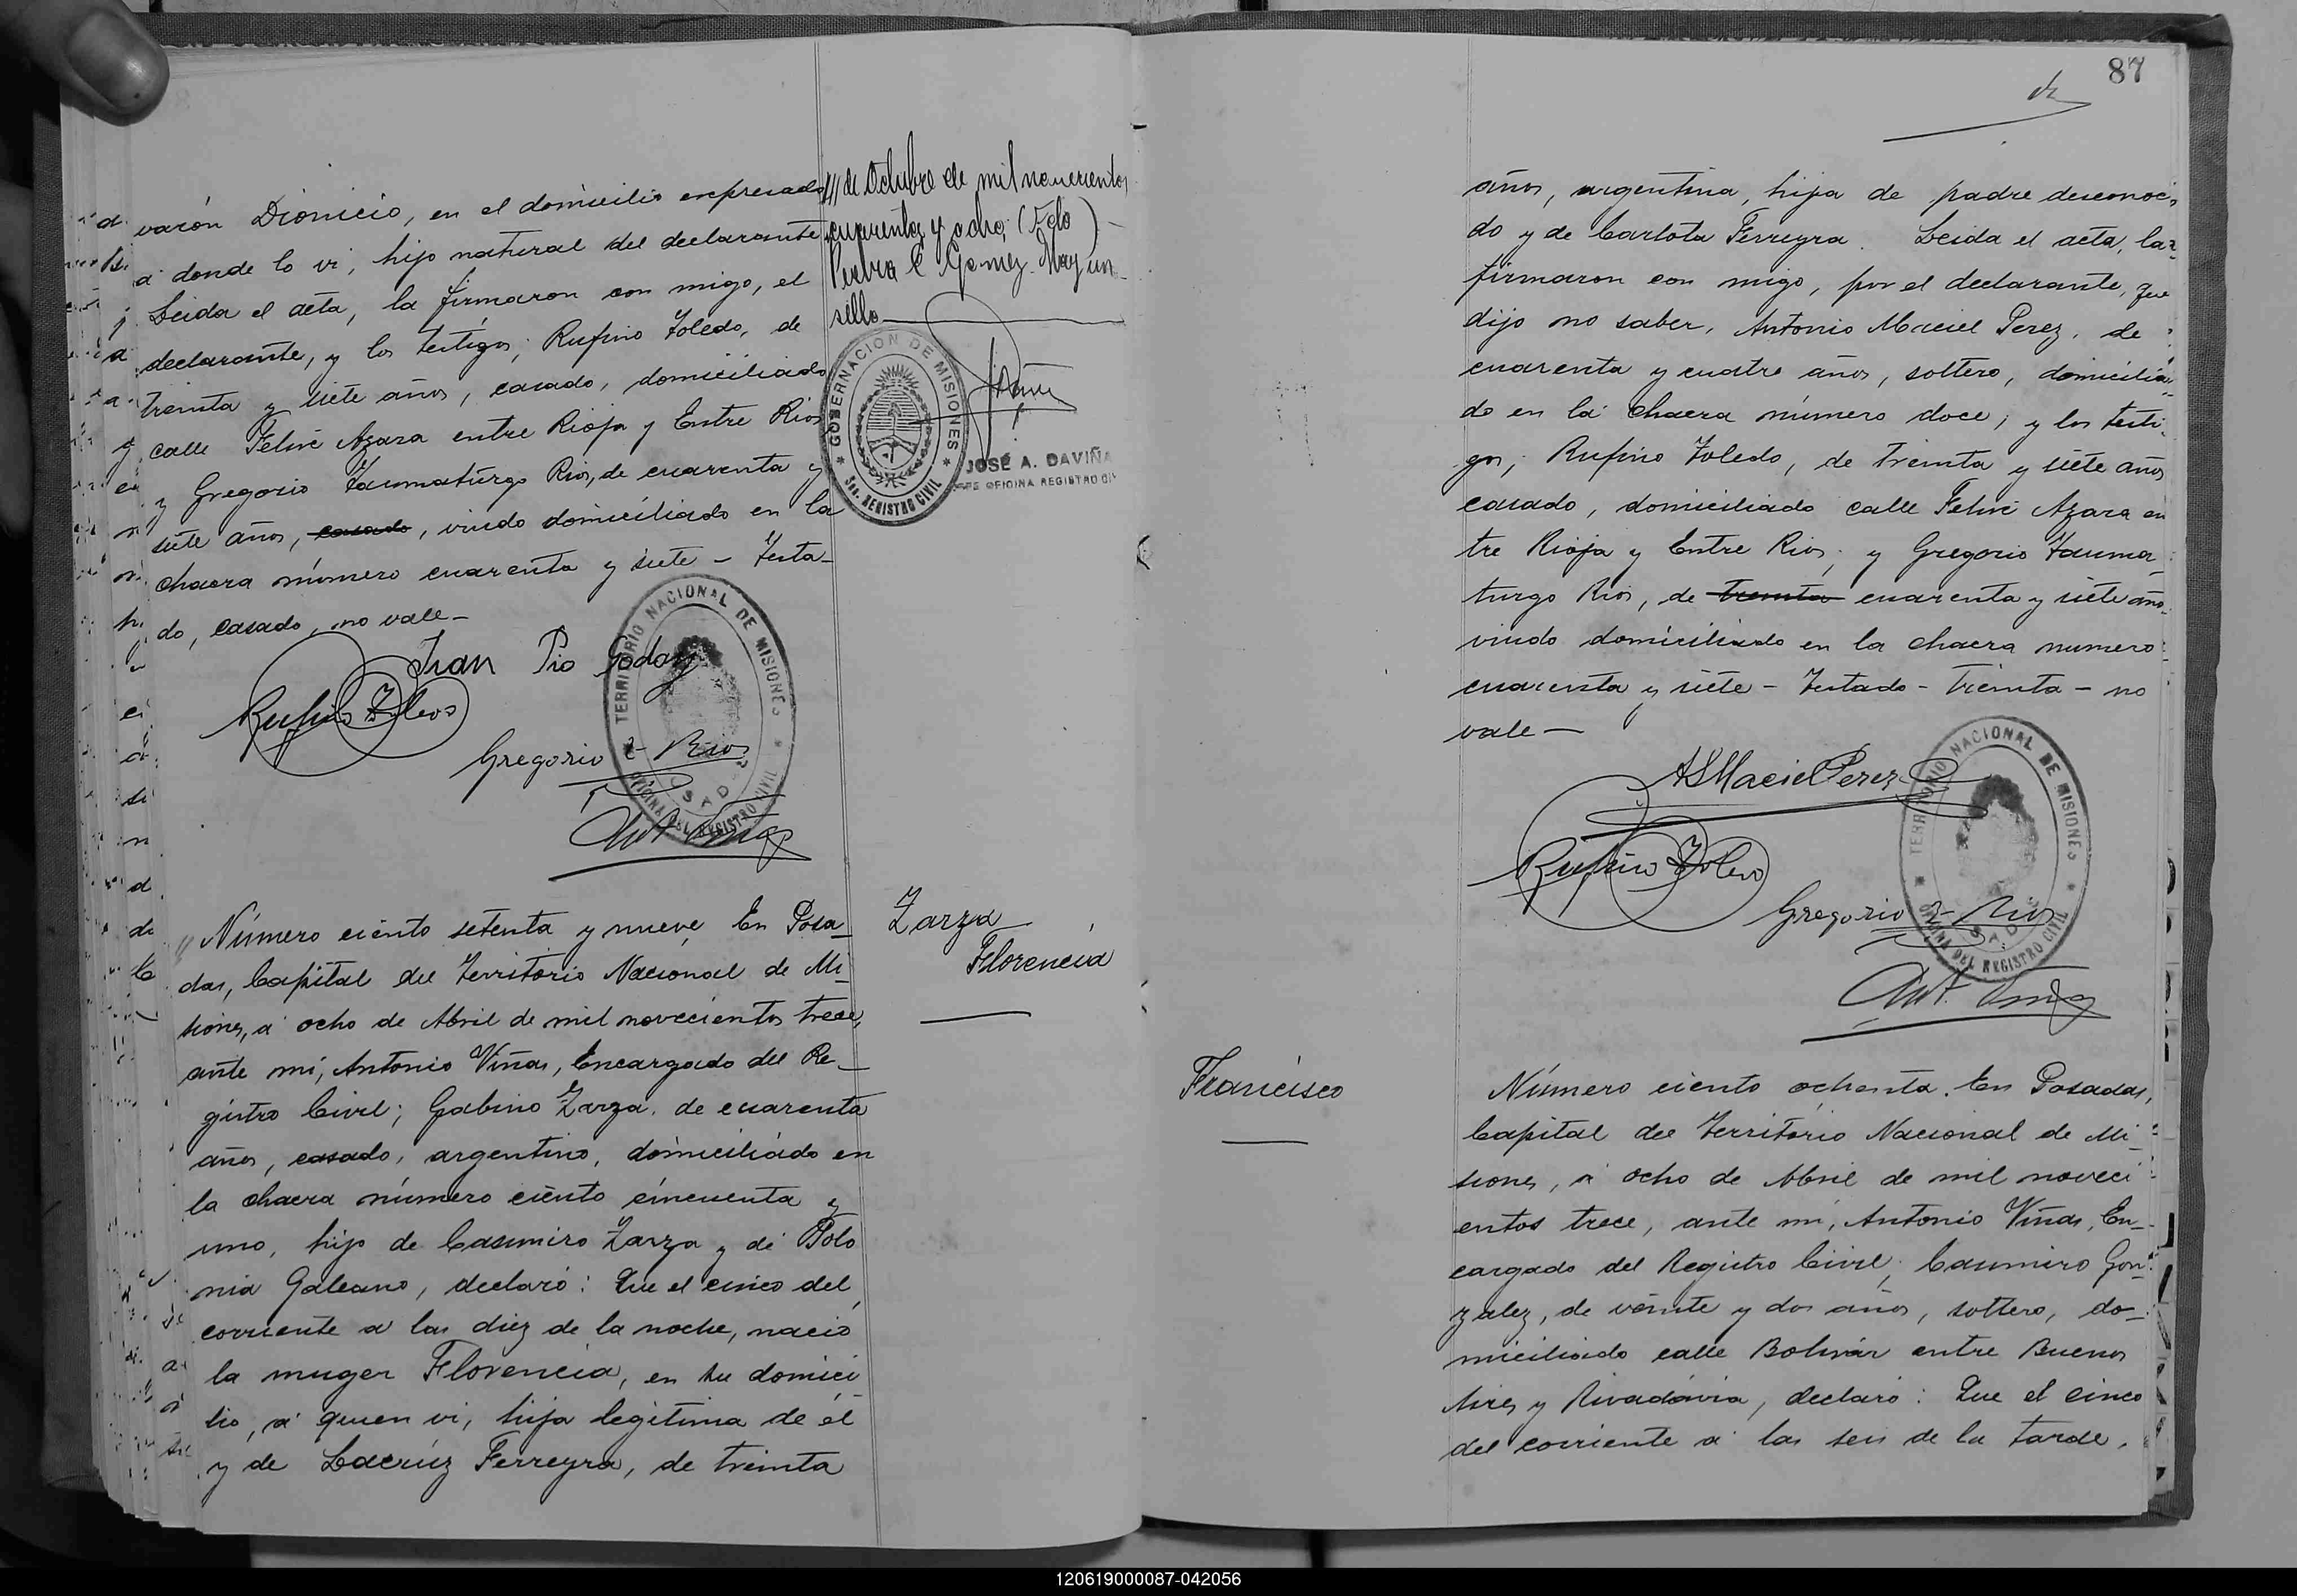 varón Dionicio, en el domicilio expresado
a donde lo vi, hijo natural del declarante
Leida el acta, la firmaron con migo, el
declarante, y los testigos; Rufino Toledo, de
treinta y siete años, casado, domiciliado
calle Felix Azara entre Rioja y Entre Rios
y Gregorio Taumaturgo Rios, de cuarenta y
siete años, casado, viudo domiciliado en la
chacra número cuarenta y siete - Testa-
do, casado, no vale -
Juan Pio Godoy
Rufino Toledo
Gregorio T. Rios
TERRITORIO NACIONAL DE MISIONES
OFICINA DEL REGISTRO CIVIL
/// de Octubre de mil novecientos
cuarenta y ocho; (Fdo)
Pedro C Gomez. Hay un
sello
GOBERNACION DE MISIONES
REGISTRO CIVIL
JOSÉ A. DAVIÑA
OFICINA REGISTRO CI
Número ciento setenta y nueve, En Posa-
das, Capital del Territorio Nacional de Mi-
siones, a ocho de Abril de mil novecientos trece,
ante mi, Antonio Viñas, Encargado del Re-
gistro Civil; Gabino Zarza, de cuarenta
años, casado, argentino, domiciliado en
la chacra número ciento cincuenta y
uno, hijo de Casimiro Zarza y de Polo
nia Galeano, declaró: Que el cinco del
corriente a las diez de la noche, nació
la muger Florencia, en su domici
lio, a quien vi, hija legitima de él
y de Lacrúz Ferreyra, de treinta
Zarza
Florencia
87
años, argentina, hija de padre desconoci
do y de Carlota Ferreyra. Leida el acta, la
firmaron con migo, por el declarante, que
dijo no saber, Antonio Maciel Perez, de
cuarenta y cuatro años, soltero, domicilia
do en la chacra número doce, y los testi
gos, Rufino Toledo, de treinta y siete años
casado, domiciliado calle Felix Azara en
tre Rioja y Entre Rios, y Gregorio Tauma
turgo Rios, de treinta cuarenta y siete años
viudo domiciliado en la chacra numero
cuarenta y siete - Testado - treinta - no
vale -
A S Maciel Perez
Rufino Toledo
Gregorio T. Rios
TERRITORIO NACIONAL DE MISIONES
OFICINA DEL REGISTRO CIVIL
Francisco
Número ciento ochenta. En Posadas,
Capital del Territorio Nacional de Mi
siones, a ocho de Abril de mil noveci
entos trece, ante mi, Antonio Viñas, En-
cargado del Registro Civil; Casimiro Gon
zalez, de veinte y dos años, soltero, do-
miciliado calle Bolivar entre Buenos
Aires y Rivadavia, declaró: Que el cinco
del corriente a las seis de la tarde,
120619000087-042056